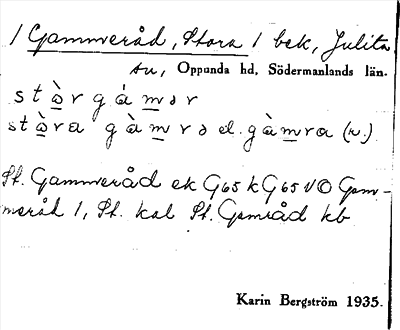 / Gammeråd, Stora / bek, Julita
sn, Oppunda hd, Södermanlands län.
stòr gámər
stòra gàmrə el. gàmra (u.)
St. Gammeråd ek G65 k G65 VO Gam-
meråd 1, St. kal St. Gamråd kb
Karin Bergström 1935.